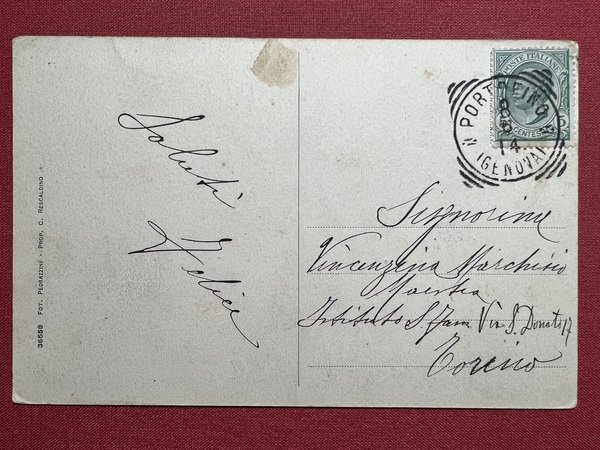 Saluti
Felice
36558 FOT. PEGRAZZINI - PROP. C. RESCALDINO
POSTE ITALIANE
CENTES
5
PORTOFINO
8
14
(GENOVA)
Signorina
Vincenzina Marchisio
Maestra
Istituto S. Via S. Donato 17
Torino